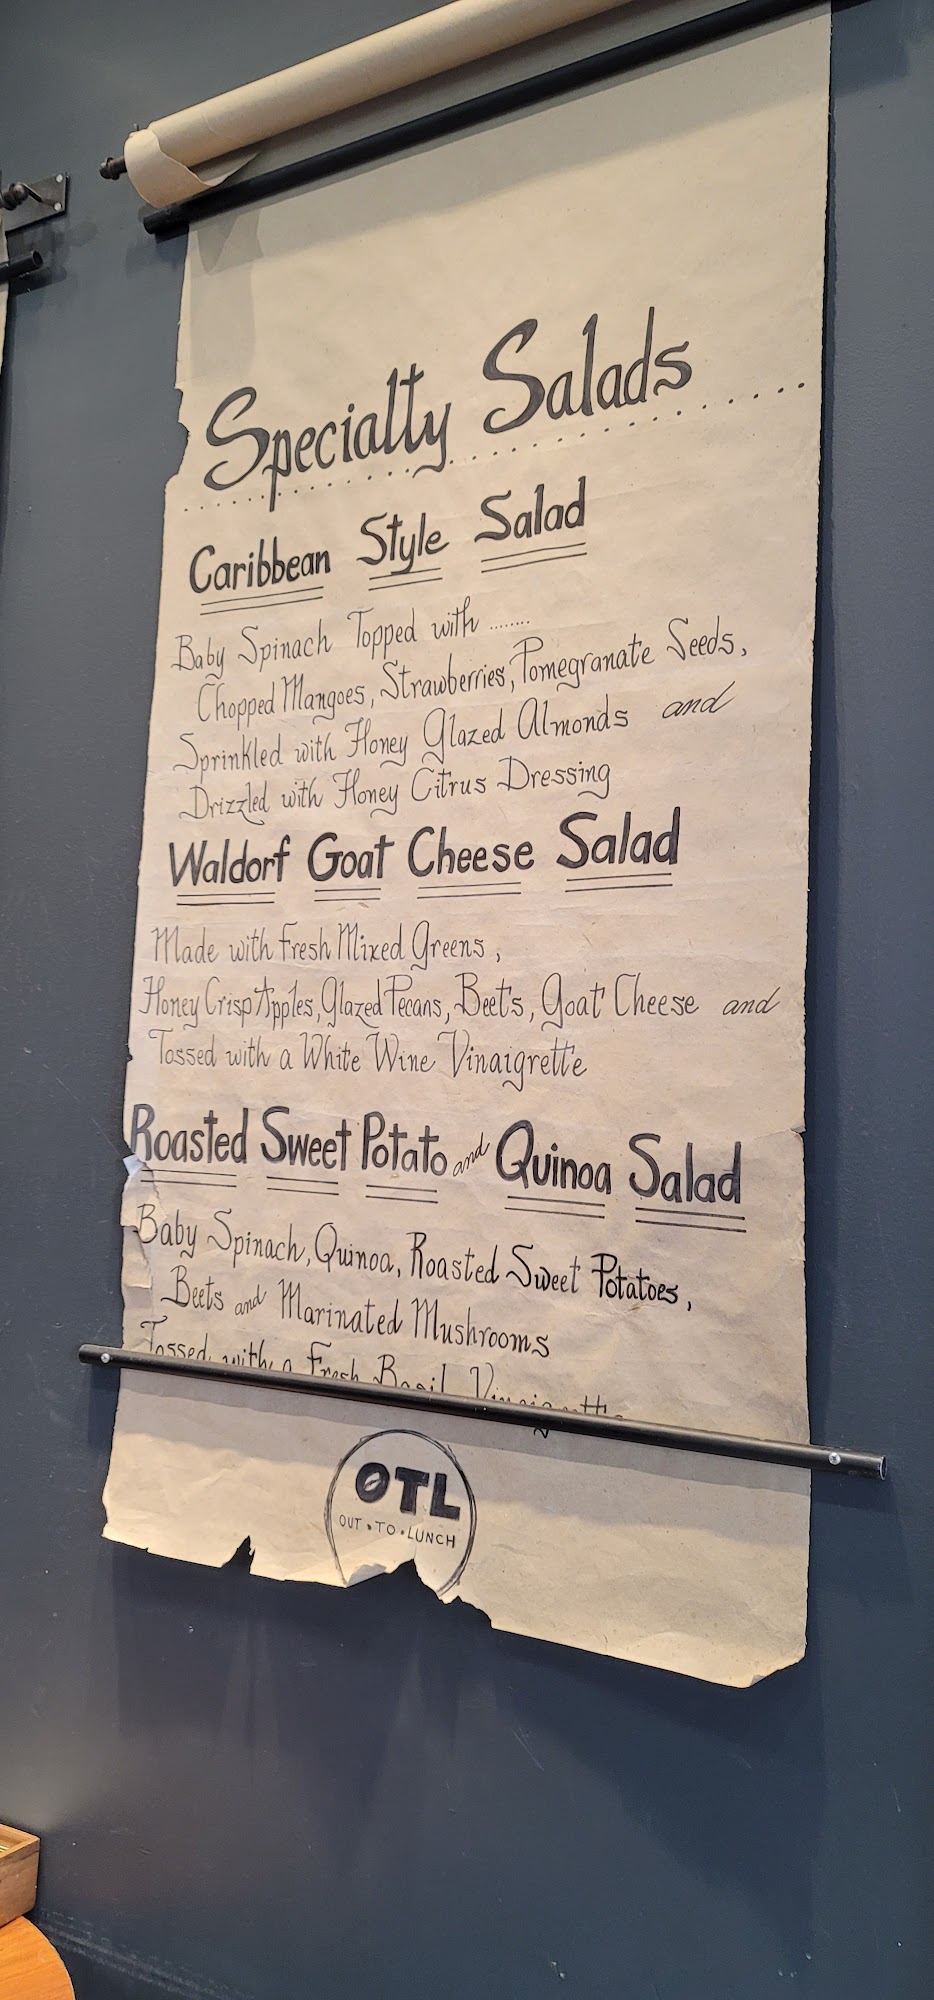 Specialty Salads
Caribbean Style Salad
Baby Spinach Topped with ........
Chopped Mangoes, Strawberries, Pomegranate Seeds,
Sprinkled with Honey Glazed Almonds and
Drizzled with Honey Citrus Dressing
Waldorf Goat Cheese Salad
Made with Fresh Mixed Greens,
Honey Crisp Apples, Glazed Pecans, Beets, Goat Cheese and
Tossed with a White Wine Vinaigrette
Roasted Sweet Potato and Quinoa Salad
Baby Spinach, Quinoa, Roasted Sweet Potatoes,
Beets and Marinated Mushrooms
Tossed with a Fresh Basil Vinaigrette
OTL
OUT • TO • LUNCH